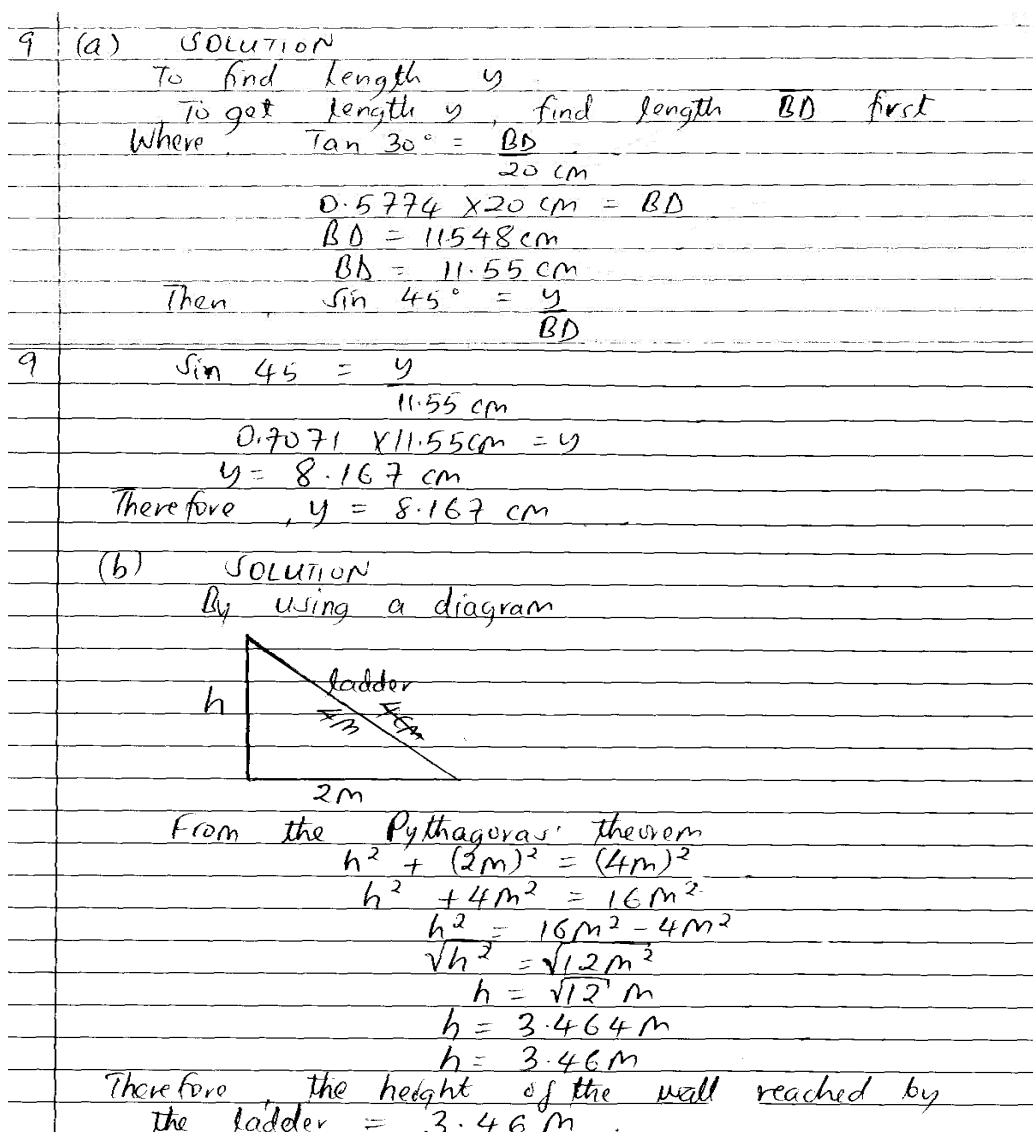 9 (a) SOLUTION
To find length y
To get length y, find length BD first
Where Tan 30° = BD
20 cm
0.5774 X20 cm = BD
BD = 11548cm
BD = 11.55 cm
Then, Sin 45° = y
BD
9 Sin 45 = y
11.55 cm
0.7071 X11.55cm = y
y = 8.167 cm
Therefore, y = 8.167 cm
(b) SOLUTION
By using a diagram
ladder
h 4m 4cm
2m
From the Pythagoras' theorem
h² + (2m)² = (4m)²
h² + 4m² = 16m²
h² = 16m² - 4m²
√h² = √12m²
h = √12 m
h = 3.464m
h = 3.46m
Therefore, the height of the wall reached by
the ladder = 3.46 m.